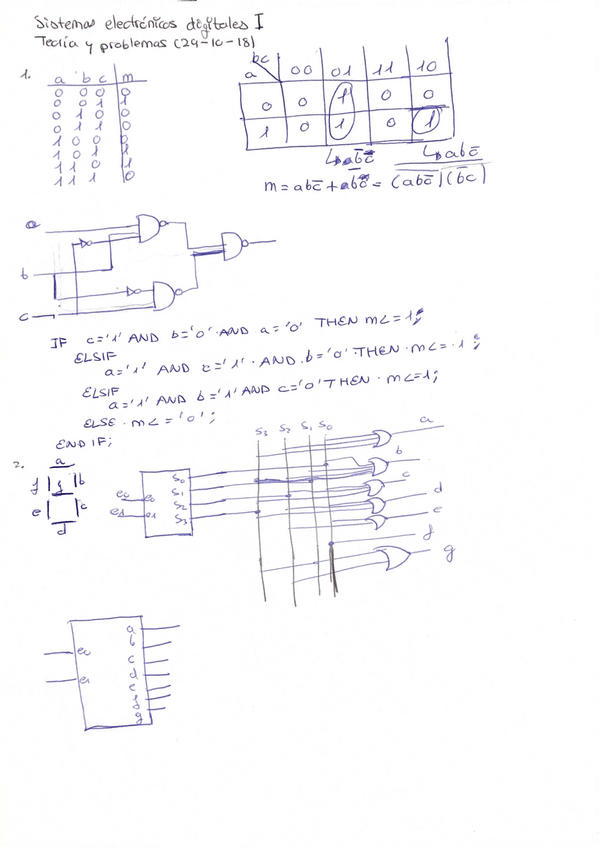 Sistemas electrónicos digitales I
Teoría y problemas (29-10-18)
1.
a b c m
0 0 0 0
0 0 1 1
0 1 0 0
0 1 1 0
1 0 0 0
1 0 1 1
1 1 0 1
1 1 1 0
bc
a 00 01 11 10
0 0 1 0 0
1 0 1 0 1
a
b
c
IF c='1' AND b='0' AND a='0' THEN m<=1;
ELSIF
a='1' AND c='1' AND b='0' THEN m<=1;
ELSIF
a='1' AND b='1' AND c='0' THEN m<=1;
ELSE m<='0';
END IF;
2.
a
f g b
e c
d
e0 e0 S0
e1 e1 S1
S2
S3
S3 S2 S1 S0
a
b
c
d
e
f
g
e0 a
b
e1 c
d
e
f
g